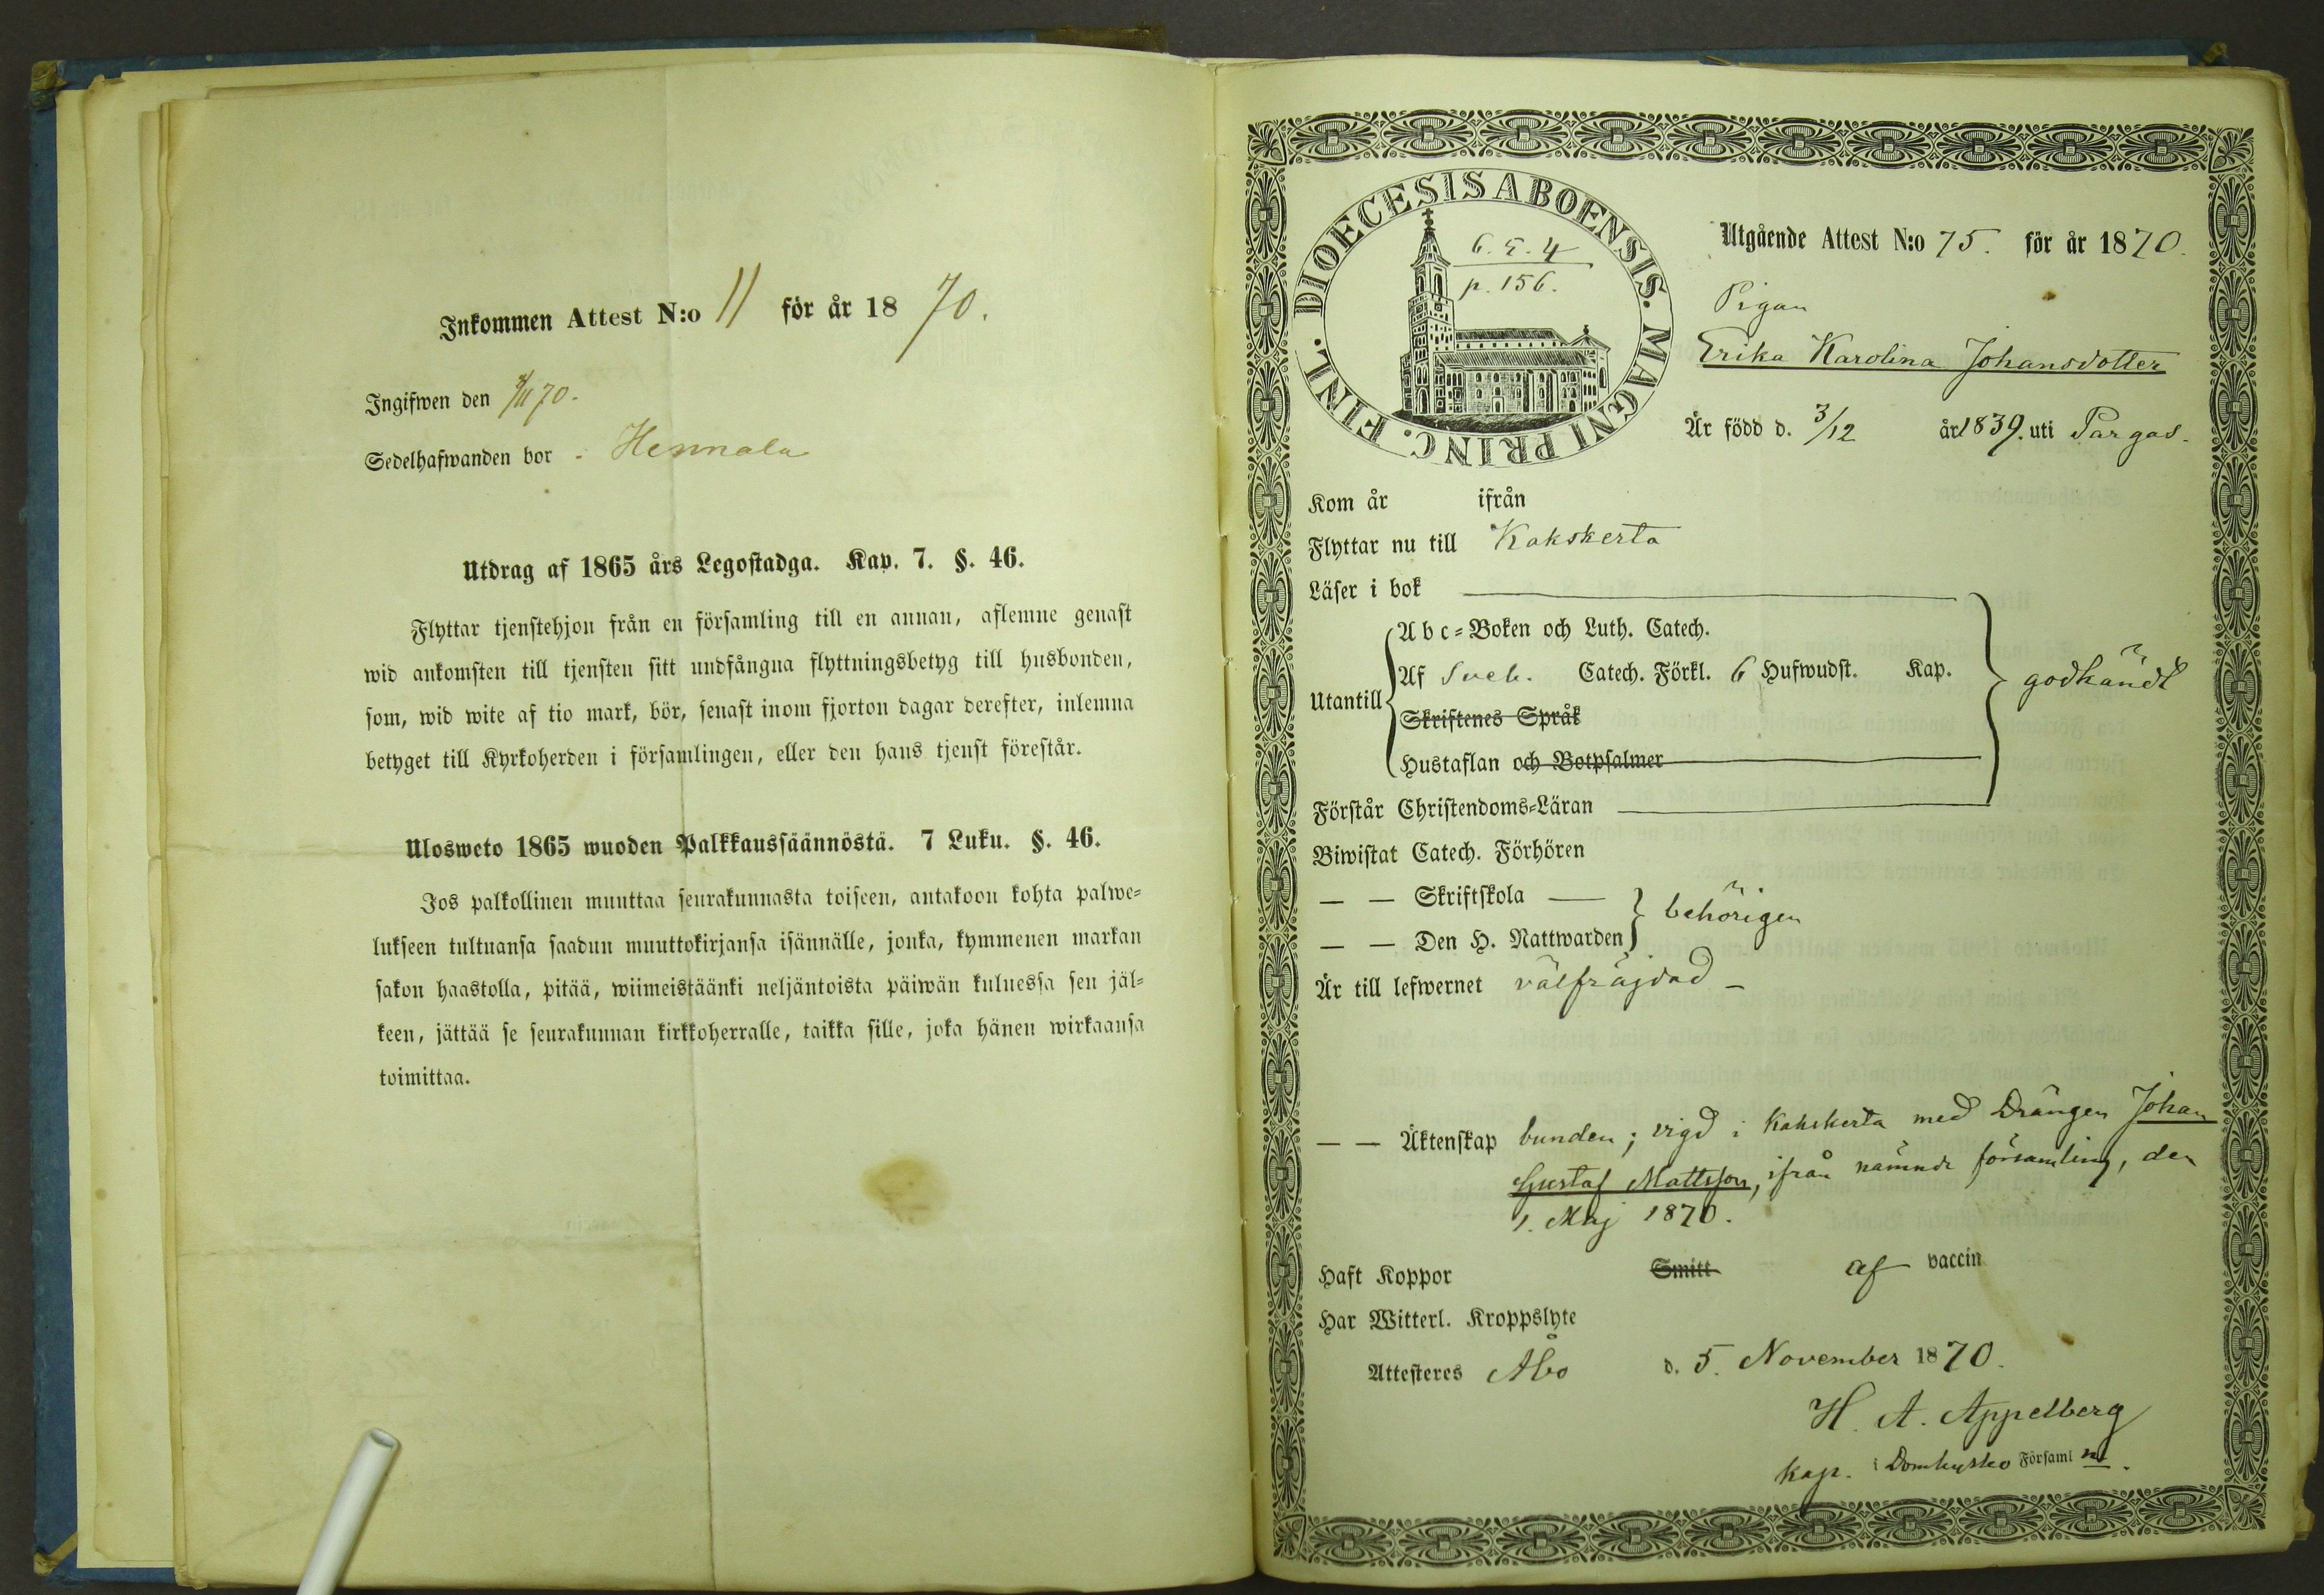 Inkommen Attest N:o 11 för år 1870.
Ingifwen den /11 70.
Sedelhafwanden bor Hennala
Utdrag af 1865 års Legostadga. Kap. 7. §. 46.
Flyttar tjenstehjon från en församling till en annan, aflemne genast
wid ankomsten till tjensten sitt undfångna flyttningsbetyg till husbonden,
som, wid wite af tio mark, bör, senast inom fjorton dagar derefter, inlemna
betyget till Kyrkoherden i församlingen, eller den hans tjenst förestår.
Ulosweto 1865 wuoden Palkkaussäännöstä. 7 Luku. §. 46.
Jos palkollinen muuttaa seurakunnasta toiseen, antakoon kohta palwe=
lukseen tultuansa saadun muuttokirjansa isännälle, jonka, kymmenen markan
sakon haastolla, pitää, wiimeistäänki neljäntoista päiwän kuluessa sen jäl=
keen, jättää se seurakunnan kirkkoherralle, taikka sille, joka hänen wirkaansa
toimittaa.
DIOECESIS ABOENSIS. MAGNI PRINC. FINL.
6. 4
p. 156.
Utgående Attest N:o 75. för år 1870.
Pigan
Erika Karolina Johansdotter
Är född d. 3/12 år 1839. uti Pargas.
Kom år ifrån
Flyttar nu till Kakskerta
Läser i bok
Utantill
Abc=Boken och Luth. Catech.
Af Sveb. Catech. Förkl. 6 Hufwudst. Kap.
Skriftenes Språk
Hustaflan och Botpsalmer
godkändt
Förstår Christendoms=Läran
Biwistat Catech. Förhören
— — Skriftskola —
— — Den H. Nattwarden behörigen
Är till lefwernet välfräjdad -
— — Äktenskap bunden; vigd i Kakskerta med Drängen Johan
Gustaf Mattsson, ifrån nämnde församling, den
1. Maj 1870.
Haft Koppor Smitt af vaccin
Har Witterl. Kroppslyte
Attesteres Åbo d. 5. November 1870.
H. A. Appelberg
Kap. i Domkyrko Församl n.